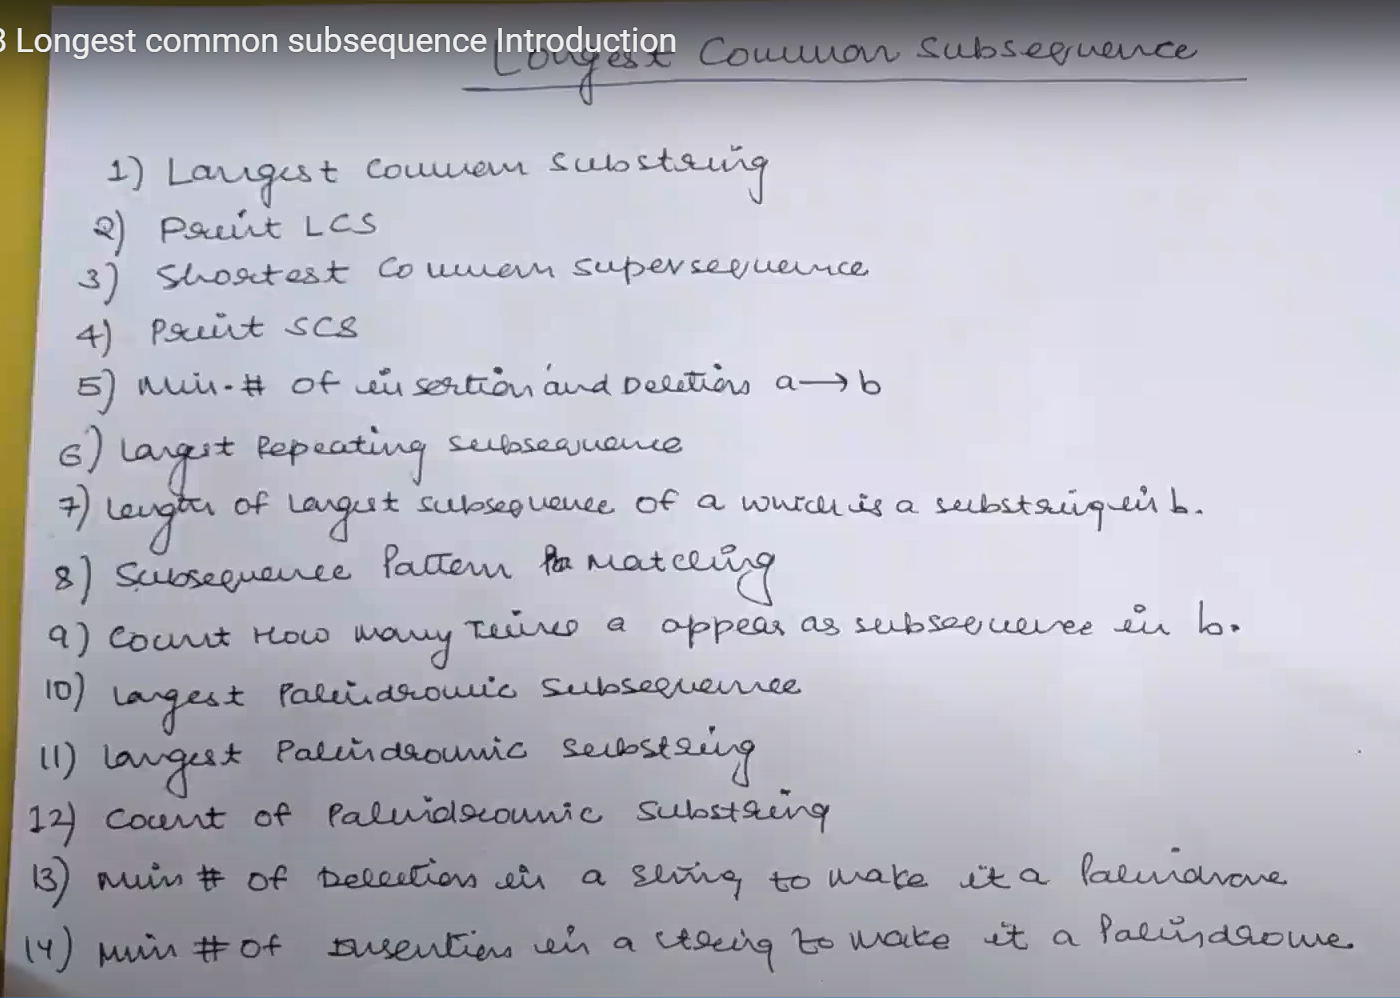 3 Longest common subsequence Introduction
Longest Common Subsequence
1) Largest Common Substring
2) Print LCS
3) Shortest Common supersequence
4) Print SCS
5) Min. # of insertion and Deletions a → b
6) Largest Repeating subsequence
7) Length of Largest subsequence of a which is a substring in b.
8) Subsequence Pattern Matching
9) Count How many Times a appear as subsequence in b.
10) Largest Palindromic Subsequence
11) Largest Palindromic Substring
12) Count of Palindromic Substring
13) Min # of Deletions in a string to make it a Palindrome
14) Min # of Insertions in a string to make it a Palindrome